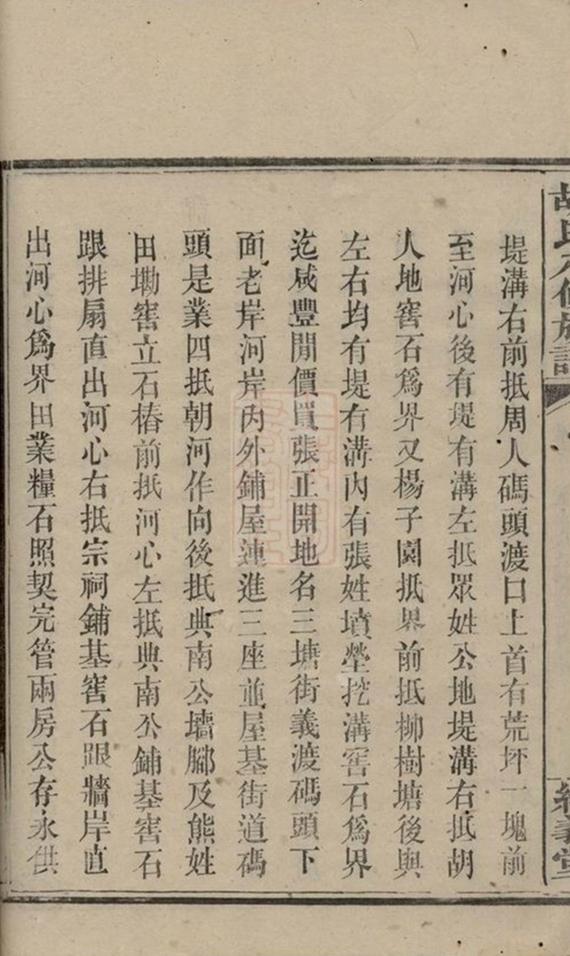 胡氏八修族譜
經義堂
堤溝右前抵周人碼頭渡口上首有荒坪一塊前
至河心後有堤有溝左抵眾姓公地堤溝右抵胡
人地窖石爲界又楊子園抵界前抵柳樹塘後與
左右均有堤有溝內有張姓墳塋挖溝窖石爲界
迄咸豐閒價買張正開地名三塘街義渡碼頭下
面老岸河岸內外鋪屋連進三座並屋基街道碼
頭是業四抵朝河作向後抵典南公墻腳及熊姓
田墈窖立石樁前抵河心左抵典南公鋪基窖石
跟排扇直出河心右抵宗祠鋪基窖石跟牆岸直
出河心爲界田業糧石照契完管兩房公存永供